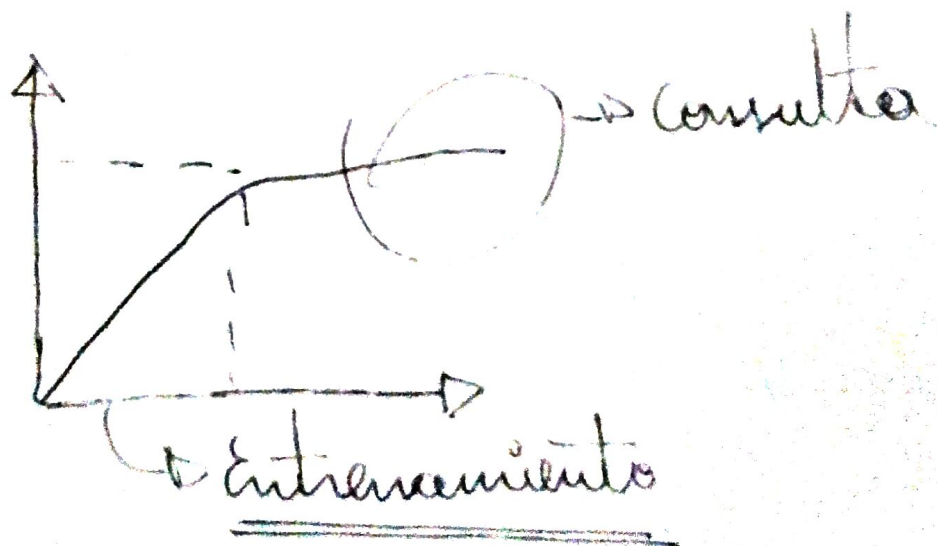 Consulta
Entrenamiento